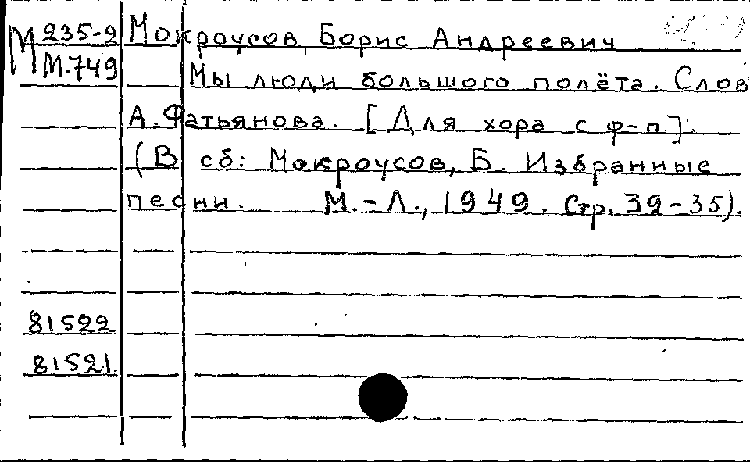 М 235-2 Мокроусов, Борис Андреевич
М-749 Мы люди большого полёта. Слов
А. Фатьянова. [Для хора с ф-п].
(В сб: Мокроусов, Б. Избранные
песни. М.-Л., 1949. Стр. 32-35).
81522
81521.